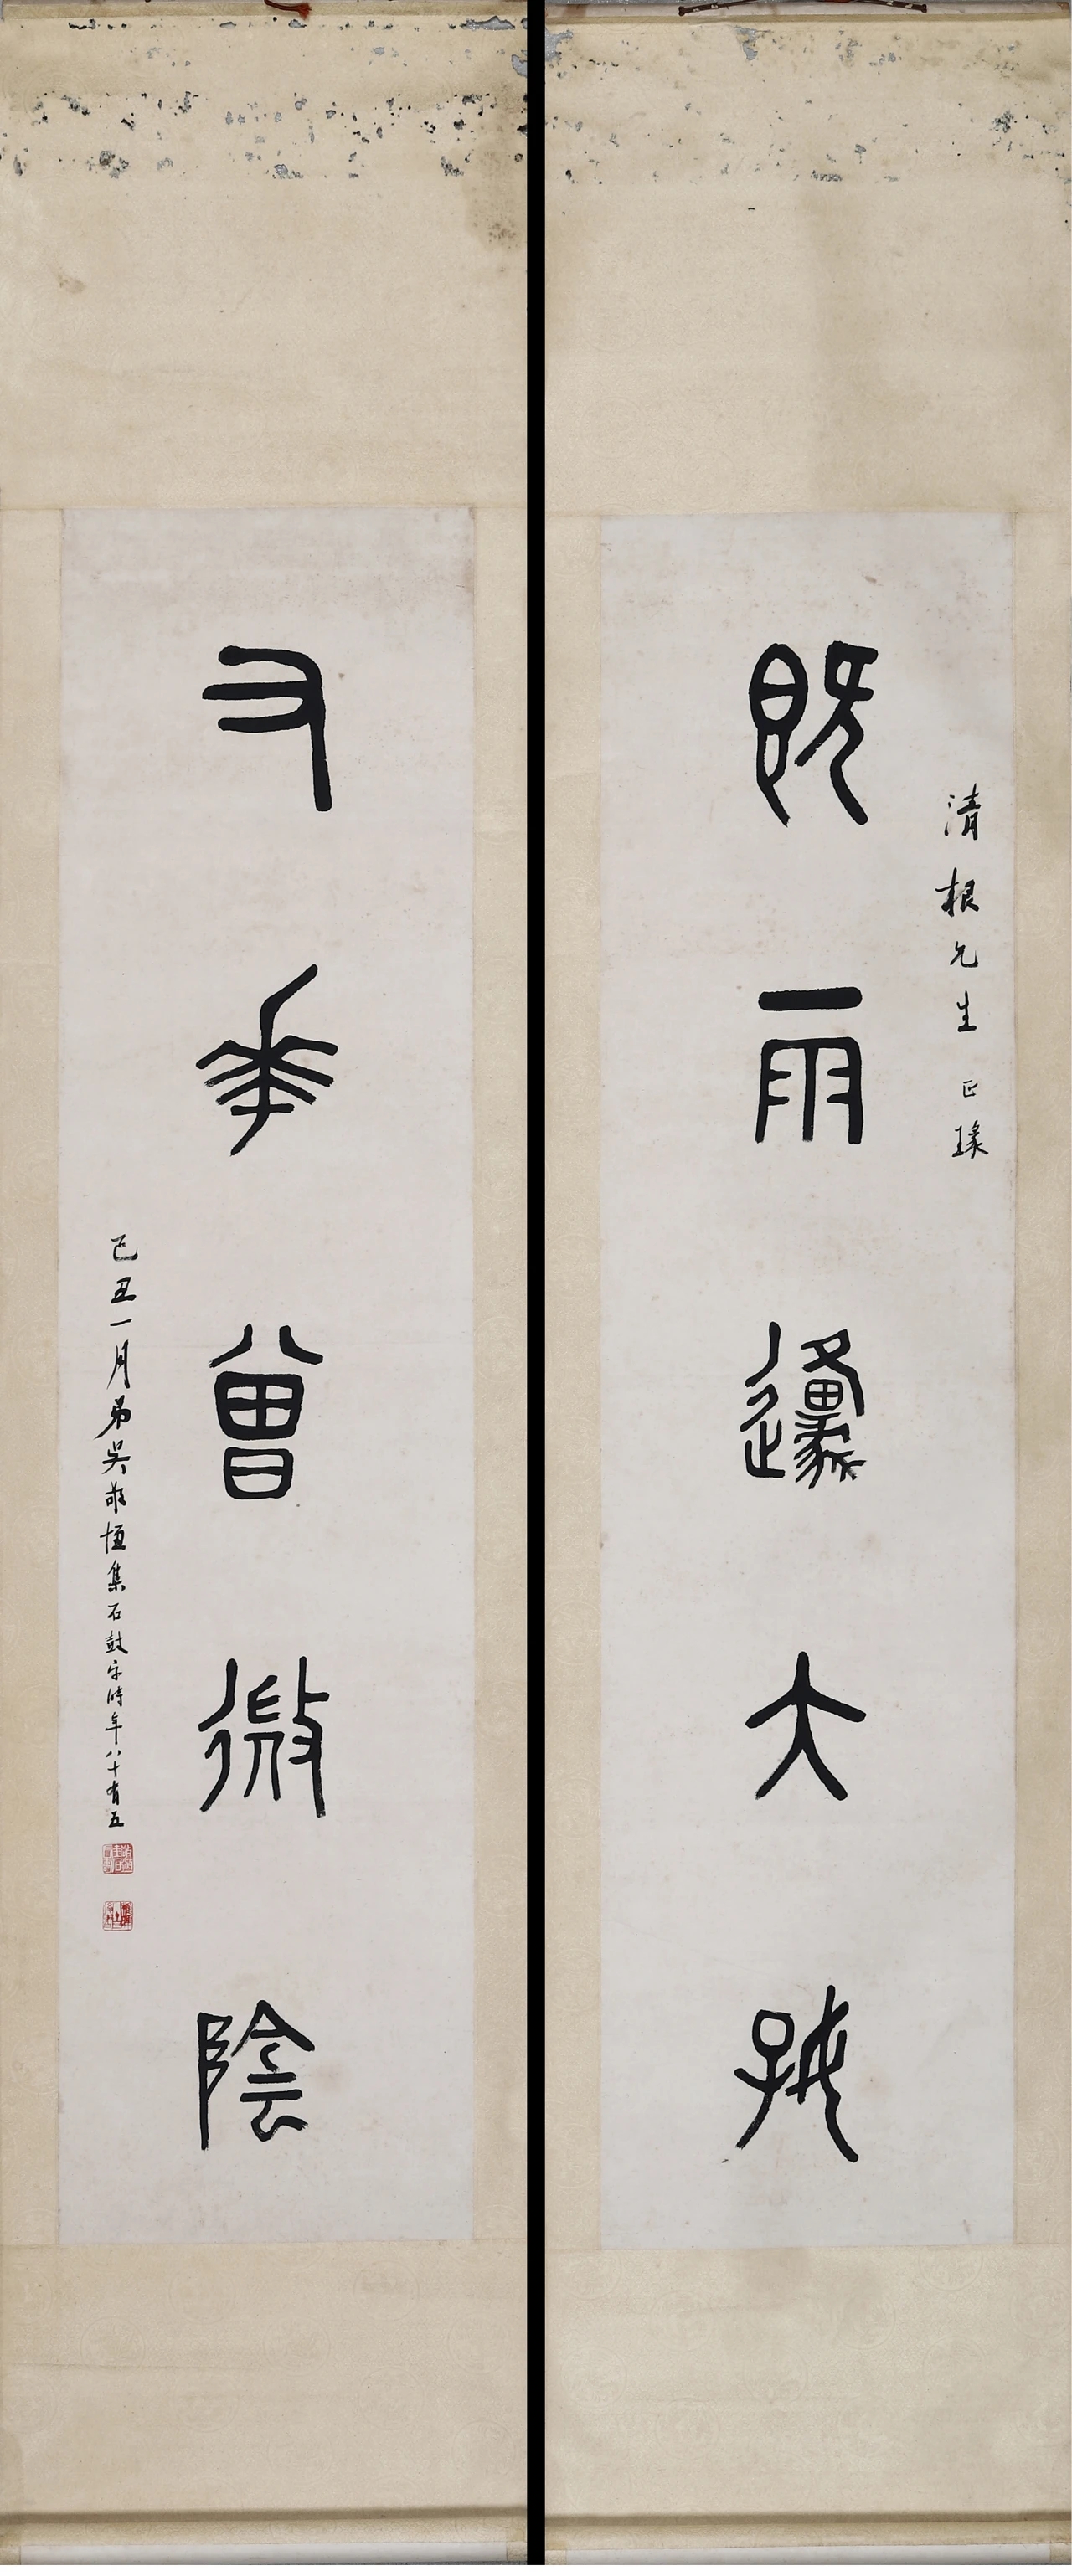 清根先生 正瑑
既雨邍大好
又華曾微陰
己丑一月弟吳敬恆集石鼓字時年八十有五